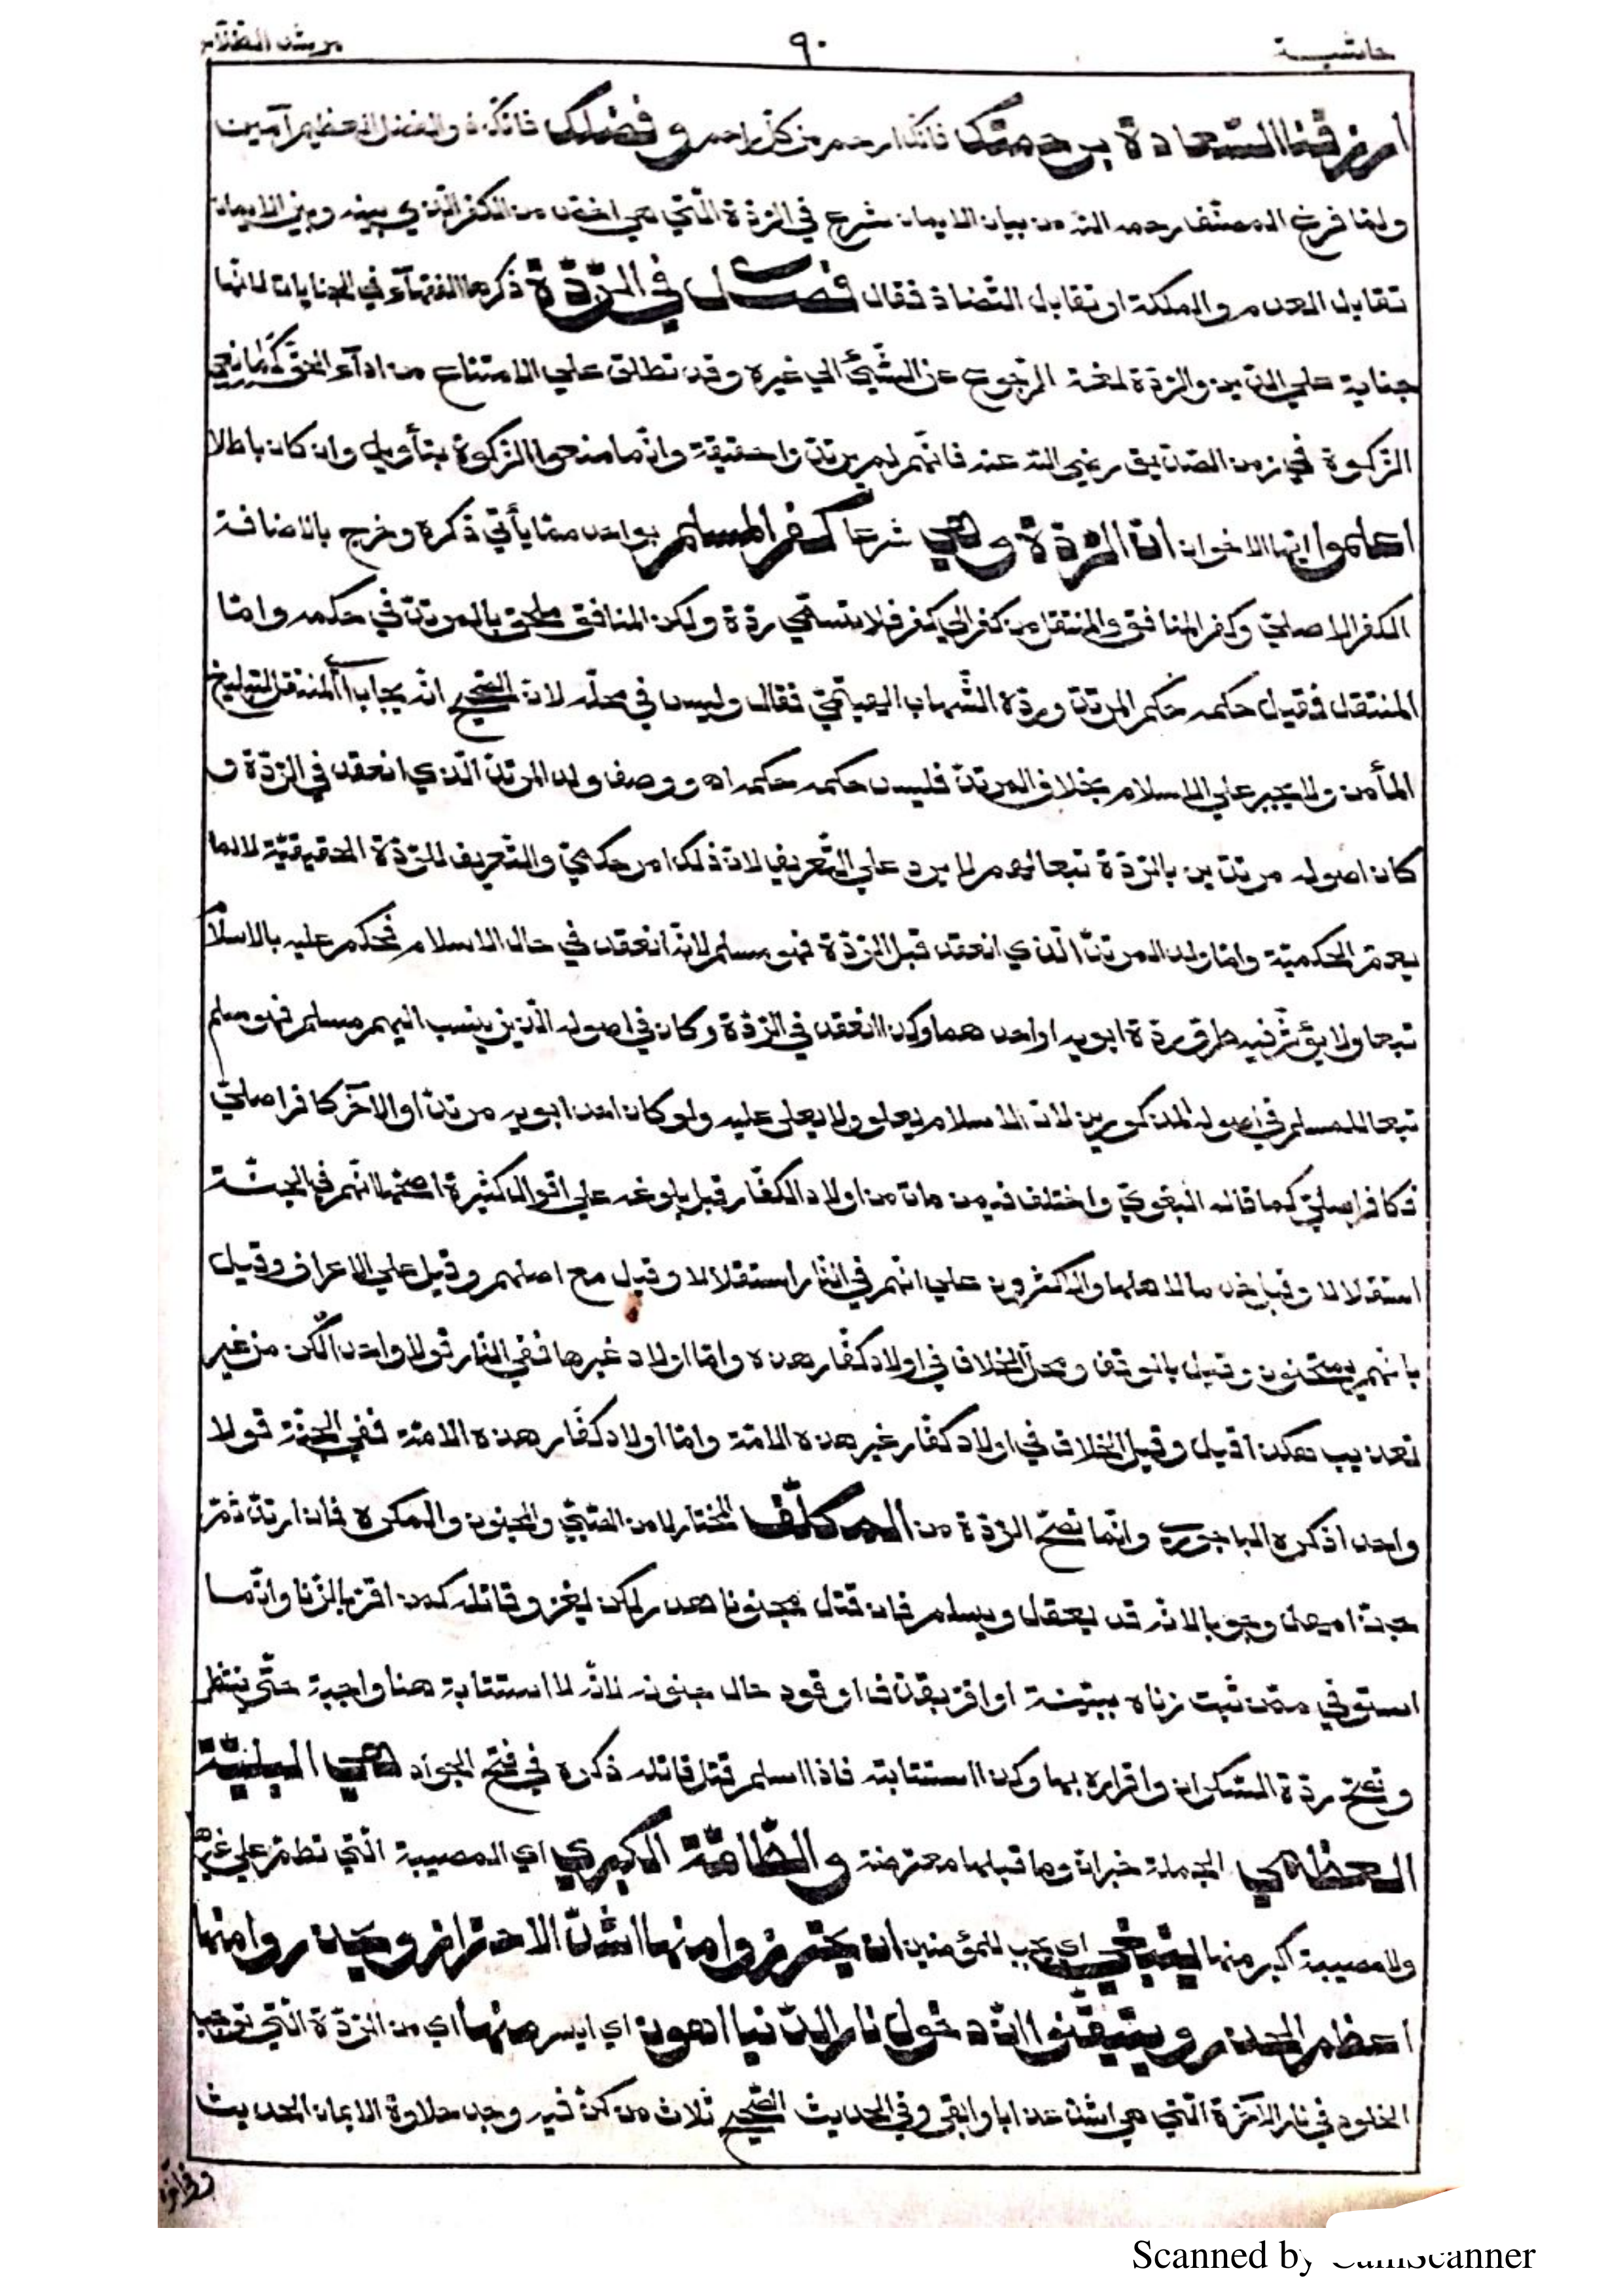 حاشية ٩٠ مرشد الطلاب
ارزقنا السعادة برحمتك فانك ارحم من كل راحم وفضلك فانك ذو الفضل العظيم آمين
ولما فرغ المصنف رحمه الله من بيان الايمان شرع في الردة التي هي اخص من الكفر الذي بينه وبين الايمان
تقابل العدم والملكة او تقابل التضاد فقال فصل في الردة ذكرها الفقهآء في الجنايات لانها
جناية علي الدين والردة لغة الرجوع عن الشيئ الي غيره وقد تطلق علي الامتناع من ادآء الحق كمانعي
الزكوة في زمن الصديق رضي الله عنه فانهم لم يرتدوا حقيقة وانما منعوا الزكوة بتأويل وان كان باطلا
اعلموا ايها الاخوان ان الردة وهي شرعا كفر المسلم بواحد مما يأتي ذكره وخرج بالاضافة
الكفر الاصلي وكفر المنافق والمنتقل من كفر الي كفر فلا تسمي ردة ولكن المنافق ملحق بالمرتد في حكمه واما
المنتقل فقيل حكمه حكم المرتد ورده الشهاب الهيتمي فقال وليس في محله لان الصحيح انه يجاب المنتقل لتبليغ
المأمن ولا يجبر علي الاسلام بخلاف المرتد فليس حكمه حكمه اه ووصف ولد المرتد الذي انعقد في الردة و
كان اصوله مرتدين بالردة تبعا لهم لا يرد علي التعريف لان ذلك امر حكمي والتعريف للردة الحقيقية لا لما
يعم الحكمية واما ولد المرتد الذي انعقد قبل الردة فهو مسلم لانه انعقد في حال الاسلام فحكم عليه بالاسلام
تبعا ولا يؤثر فيه طرق ردة ابويه او احدهما وكذا انعقد في الردة وكان في اصوله الذين ينسب اليهم مسلم فهو مسلم
تبعا للمسلم في اصوله المذكورين لان الاسلام يعلو ولا يعلي عليه ولو كان احد ابويه مرتدا والآخر كافرا صلي
فكافر اصلي كما قاله البغوي واختلف فيمن مات من اولاد الكفار قبل بلوغه علي اقوال كثيرة اصحها انهم في الجنة
استقلالا وقيل خدما لاهلها والاكثرون علي انهم في النار استقلالا وقيل مع اصلهم وقيل علي الاعراف وقيل
بانهم يمتحنون وقيل بالوقف ومحل الخلاف في اولاد كفار هذه واما اولاد غيرها ففي النار قولا واحدا لكن من غير
تعذيب هكذا قيل وقيل الخلاف في اولاد كفار غير هذه الامة واما اولاد كفار هذه الامة ففي الجنة قولا
واحدا ذكره الباجوري وانما تصح الردة من المكلف المختار لا من الصبي والمجنون والمكره فان ارتد ثم
جن امهل وجوبا لانه قد يعقل ويسلم فان قتل مجنونا هدر لكن يعزر قاتله كمن اقر بالزنا وانما
استوفي ممن ثبت زناه ببينة او اقر بقذف او قود حال جنونه لانه لا استتابة هنا واجبة حتي ينتظر
وتصح ردة السكران واقراره بها وكذا استتابته فاذا اسلم قتل قاتله ذكره في فتح الجواد هي البلية
العظمي الجملة خبر ان وما قبلها معترضة والطامة الكبري اي المصيبة التي تطم علي غيرها
ولا مصيبة اكبر منها ينبغي اي يجب للمؤمنين ان يحترزوا منها اشد الاحتراز ويحذروا منها
اعظم الحذر ويتيقنوا ان دخول نار الدنيا اهون اي ايسر منها اي من الردة التي توجب
الخلود في نار الآخرة التي هي اشد عذابا وابقي وفي الحديث الصحيح ثلاث من كن فيه وجد حلاوة الايمان الحديث
Scanned by CamScanner